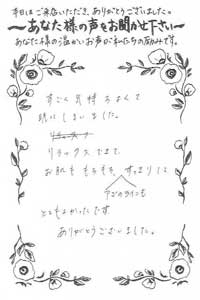 本日はご来店いただき、ありがとうございました。
～あなた様の声をお聞かせ下さい～
あなた様の温かいお声が私たちの励みです。
すごく気持ちよくて
眠いしまいました。
リラックスできて、
お肌ももちもち、すっきりして
フェイスラインも
とてもよかったです
ありがとうございました。